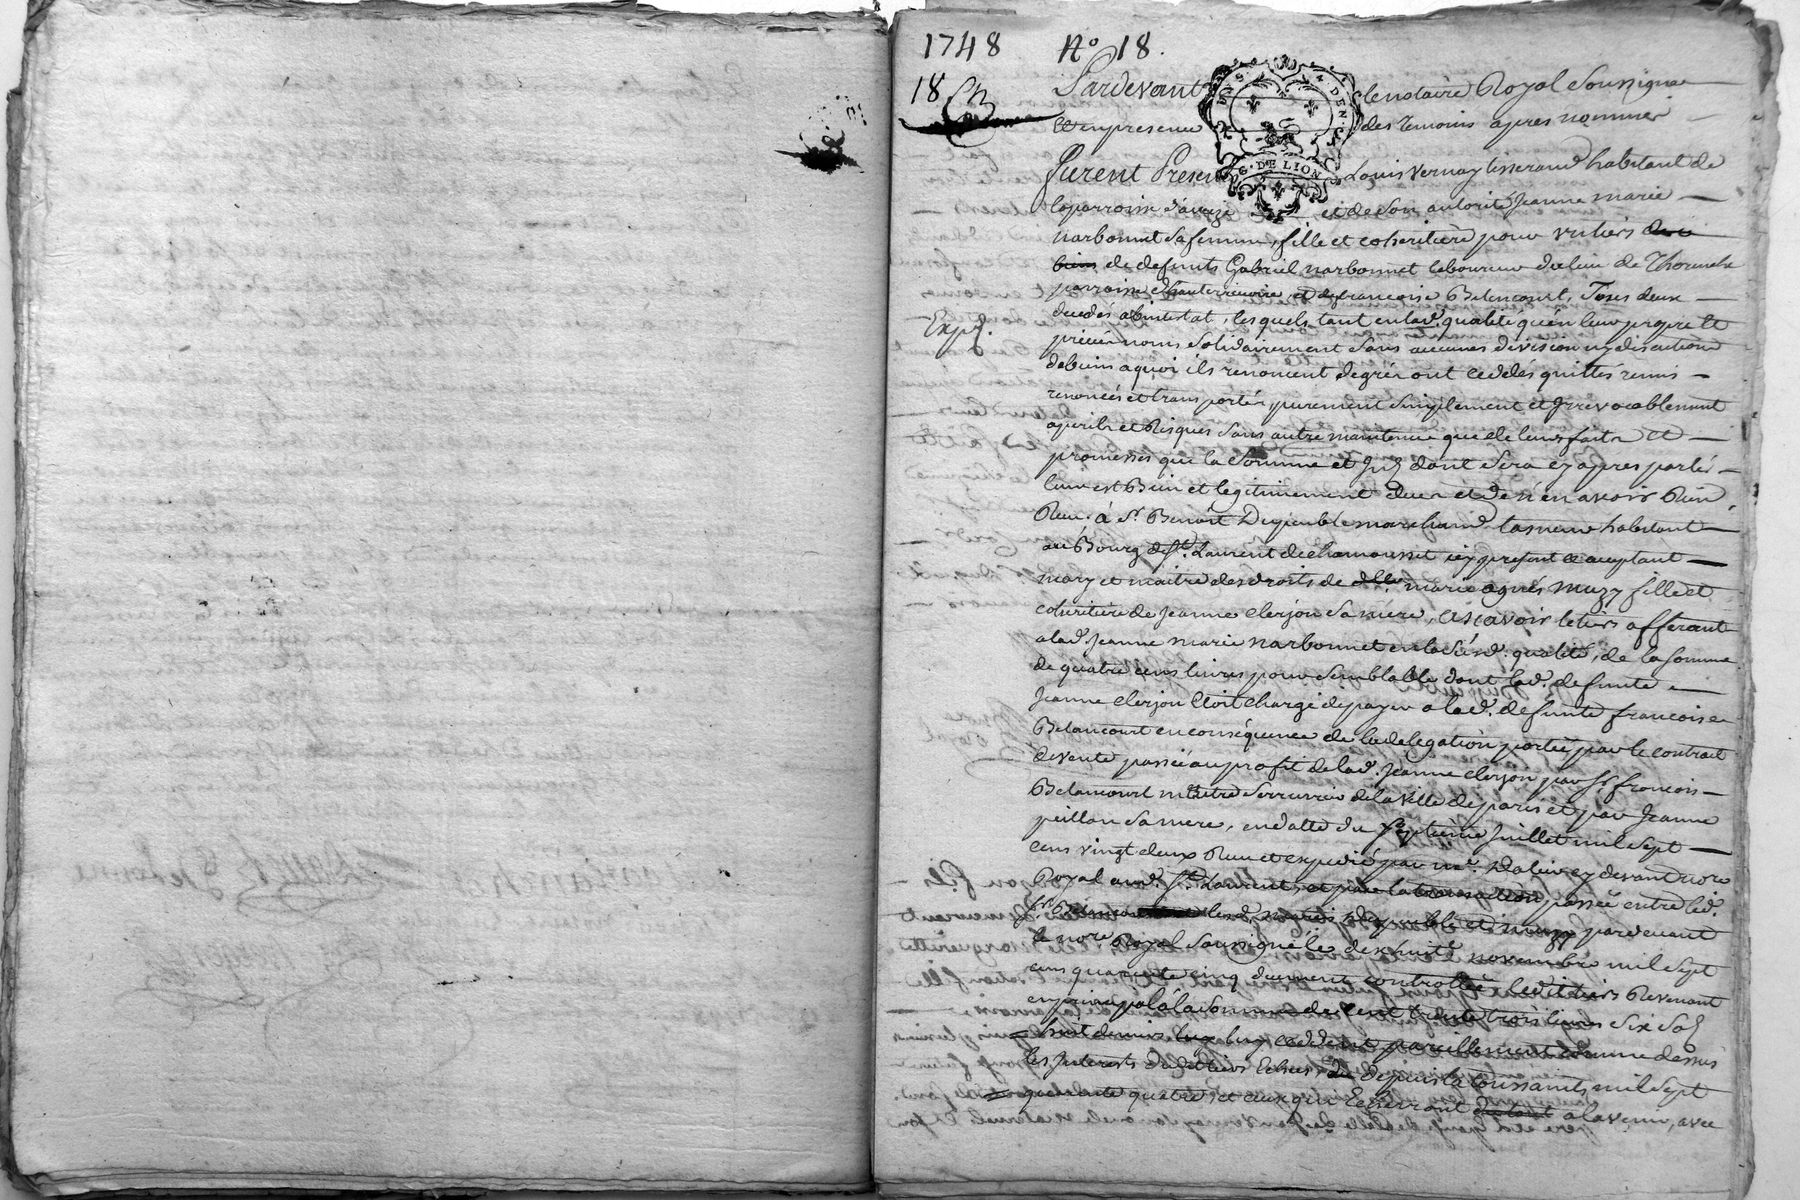 1748 N° 18.
18
Pardevant le notaire Royal Soussigné
et en presence des temoins apres nommés
furent Presents Louis Vernay tisserand habitant de
la parroisse d'aveze et de son autorité Jeanne marie
narbonnet sa femme, fille et coheritiere pour un tiers
biens de defunts Gabriel narbonnet laboureur du lieu de
parroisse d'hauterivoire, et de francoise Betencourt, Tous deux
decedés abintestat, lesquels tant en lad. qualité qu'en leur propre et
Expé.
privé noms solidairement sans aucunes division ny discution
de biens a quoi ils renoncent de gré ont cedés quittés remis
renoncés et transportés, purement simplement et Irrevocablement
a perils et Risques sans autre maintenue que de leurs faits et
promesses que la somme et dont sera cy apres parlés
leur est Bien et legitimement deue et de n'en avoir Rien
Receu. à Sr. Benoit Dupeuble marchand habitant
au Bourg de St. Laurent de chamousset icy present et aceptant
mary et maitre des droits de dlle. marie agnés muzy fille et
coheritiere de Jeanne clerjon sa mere, ascavoir le tiers afferant
a lad. Jeanne marie narbonnet en lad. qualité, de la somme
de quatre cens livres pour semblable dont lad. defunte
Jeanne clerjon étoit chargé de payer a lad. defunte francoise
Betancourt en conséquence de la delegation portée par le contrait
de vente passé au profit de lad. Jeanne clerjon par Sr. francois
Betancourt maitre serrurier de la ville de paris et par Jeanne
peillon sa mere, en datte du septieme Juillet mil sept
cens vingt deux Receu et expedié par me. cy devant nore
Royal aud. St. Laurent, et par la transaction passée entre led.
Sr. Betancourt lesd. mariés Dupeuble et muzy pardevant
le nore Royal soussigné le dix huit novembre mil sept
cens quarante cinq duement controllée led. tiers Revenant
en principal à la somme de cent trente trois livres six sols
huit deniers luy ceddent pareillement comme dessus
les Interests dud. tiers Echeus depuis la toussaints mil sept
quarante quatre, et ceux qui Echerront a l'avenir, avec